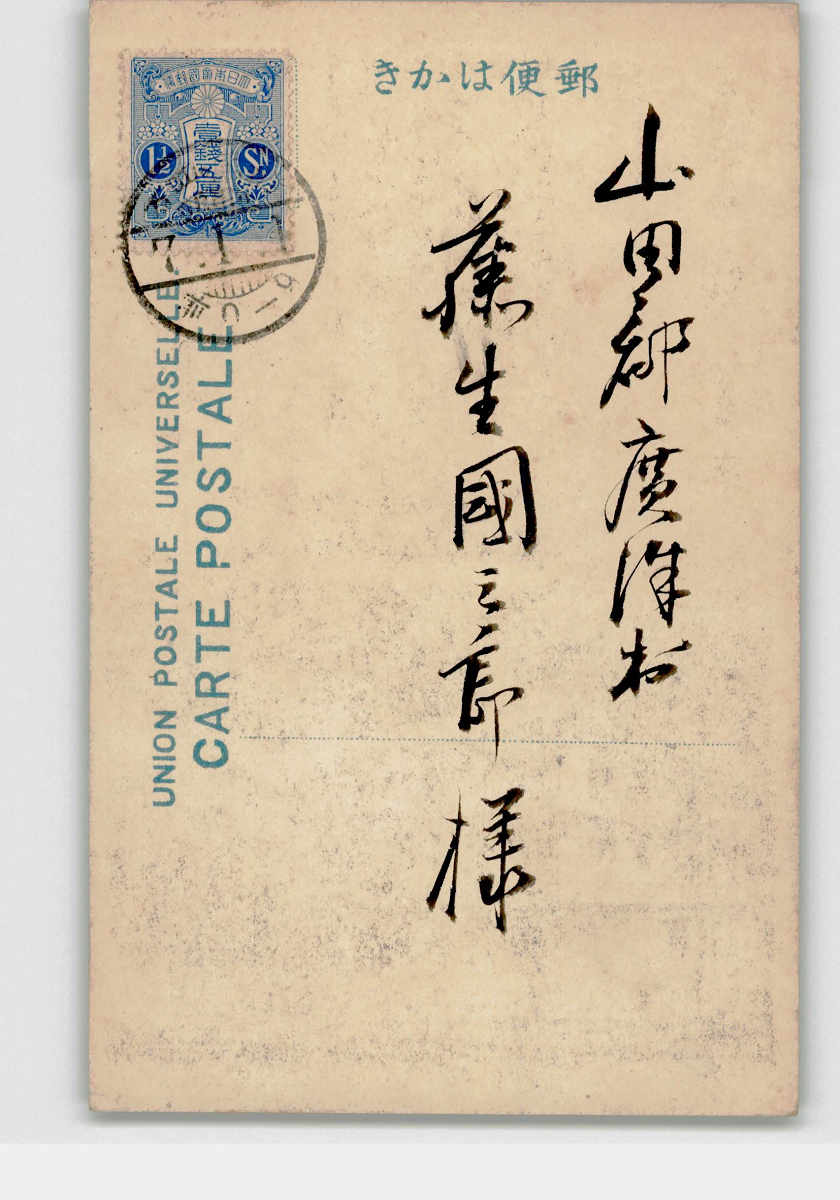 郵便はかき
大日本帝國郵便
壹錢五厘
1½ SN
7.1.1
UNION POSTALE UNIVERSELLE.
CARTE POSTALE
山田郡廣沢村
藤生國三郎様